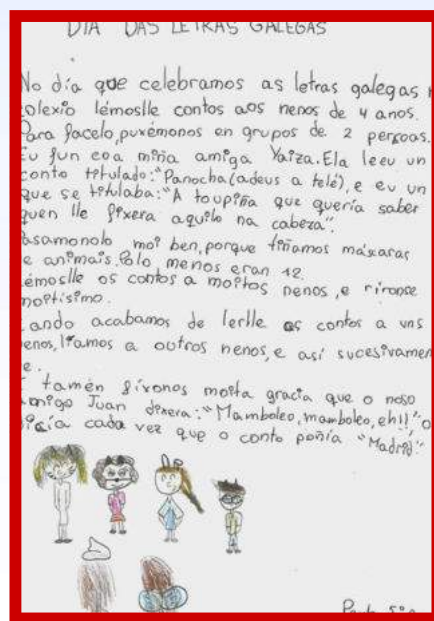 DIA DAS LETRAS GALEGAS
No día que celebramos as letras galegas n
colexio lémoslle contos aos nenos de 4 anos.
Para facelo, puxémonos en grupos de 2 persoas.
Eu fun coa miña amiga Yaiza. Ela leeu un
conto titulado: "Panocha (adeus a telé), e eu un
que se titulaba: "A toupiña que quería saber
quen lle fixera aquilo na cabeza".
asamonolo moi ben, porque tiñamos máscaras
e animais. Polo menos eran 12.
émoslle os contos a moitos nenos, e rironse
moitísimo.
ando acabamos de lerlle os contos a uns
enos, liamos a outros nenos, e así sucesivamen
e.
E tamén fíxonos moita gracia que o noso
amigo Juan dixera: "Mamboleo, mamboleo, eh!!" o
dicía cada vez que o conto poñía "Madrid".